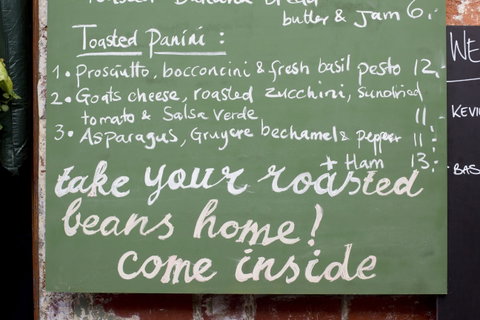 Toasted Banana Bread
butter & Jam 6.
Toasted Panini :
1. Prosciutto, bocconcini & fresh basil pesto 12.
2. Goats cheese, roasted zucchini, sundried
tomato & Salsa Verde 11.
3. Asparagus, Gruyere bechamel & pepper 11.
+ Ham 13.
take your roasted
beans home!
come inside
WE
KEVI
BAS